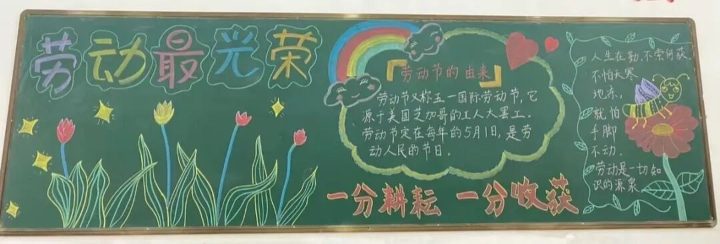 劳动最光荣
劳动节的由来
劳动节又称五一国际劳动节,它
源于美国芝加哥的工人大罢工。
劳动节定在每年的5月1日,是劳
动人民的节日。
一分耕耘 一分收获
人生在勤,不索何获
不怕天寒
地冻,
就怕
手脚
不动。
劳动是一切知
识的源泉